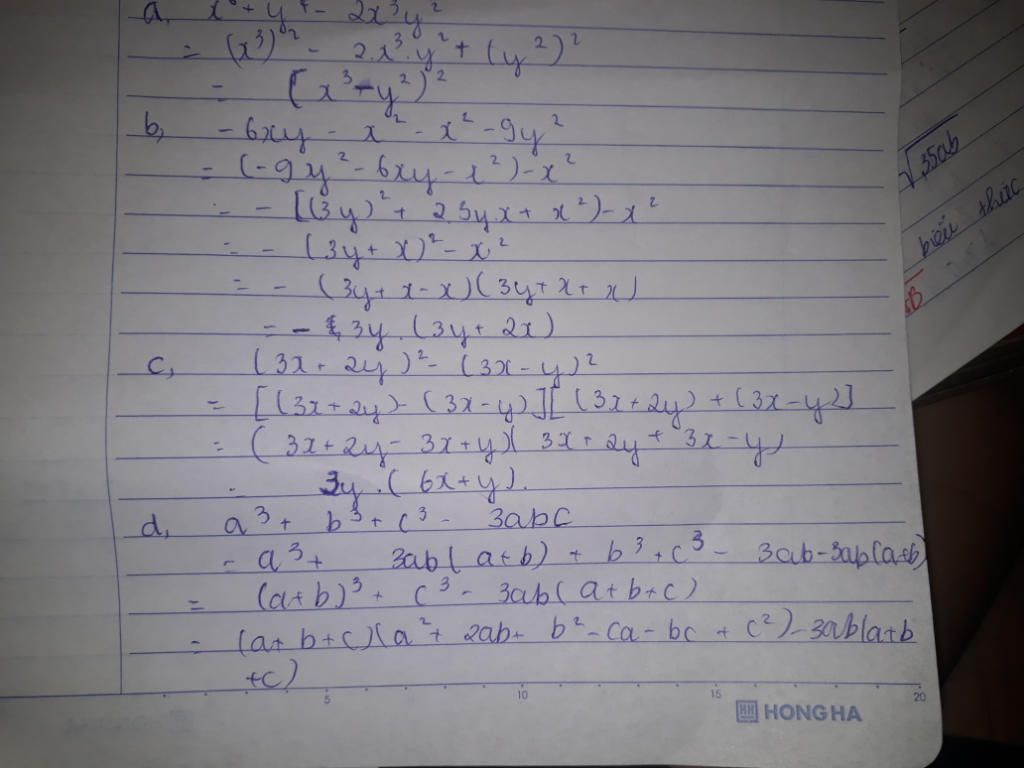 a, x⁶ + y⁴ - 2x³y²
= (x³)² - 2.x³.y² + (y²)²
= (x³ - y²)²
b, - 6xy - x² - x² - 9y²
= (-9y² - 6xy - x²) - x²
= - [(3y)² + 2.3y.x + x²) - x²
= - (3y + x)² - x²
= - (3y + x - x)(3y + x + x)
= - 3y . (3y + 2x)
c, (3x + 2y)² - (3x - y)²
= [(3x + 2y) - (3x - y)][(3x + 2y) + (3x - y)]
= (3x + 2y - 3x + y)(3x + 2y + 3x - y)
= 3y . (6x + y).
d, a³ + b³ + c³ - 3abc
= a³ + 3ab(a+b) + b³ + c³ - 3ab - 3ab(a+b)
= (a+b)³ + c³ - 3ab(a+b+c)
= (a+b+c)(a² + 2ab + b² - ca - bc + c²) - 3ab(a+b
+c)
√35ab
biểu thức
B
5 10 15 20
HH HONG HA